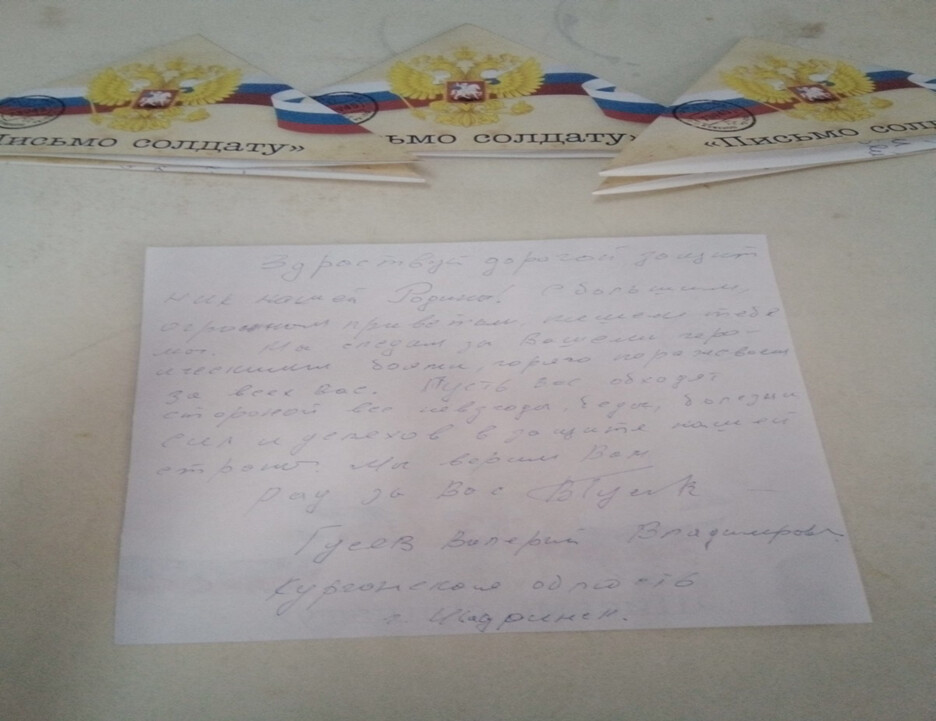 Письмо солдату»
ьмо солдату»
«Письмо сол
Здраствуй дорогой защит
ник нашей Родины! С большим,
огромном приветом, пишем тебе
мы. Мы следим за Вашеми геро-
ическими боями, горячо переживаем
за всех Вас. Пусть Вас обходят
стороной все невзгоды, беды, болезни
сил и успехов в защите нашей
страны. Мы верим Вам
Рад за Вас
Гусев Валерий Владимирович
Курганская область
г. Шадринск.